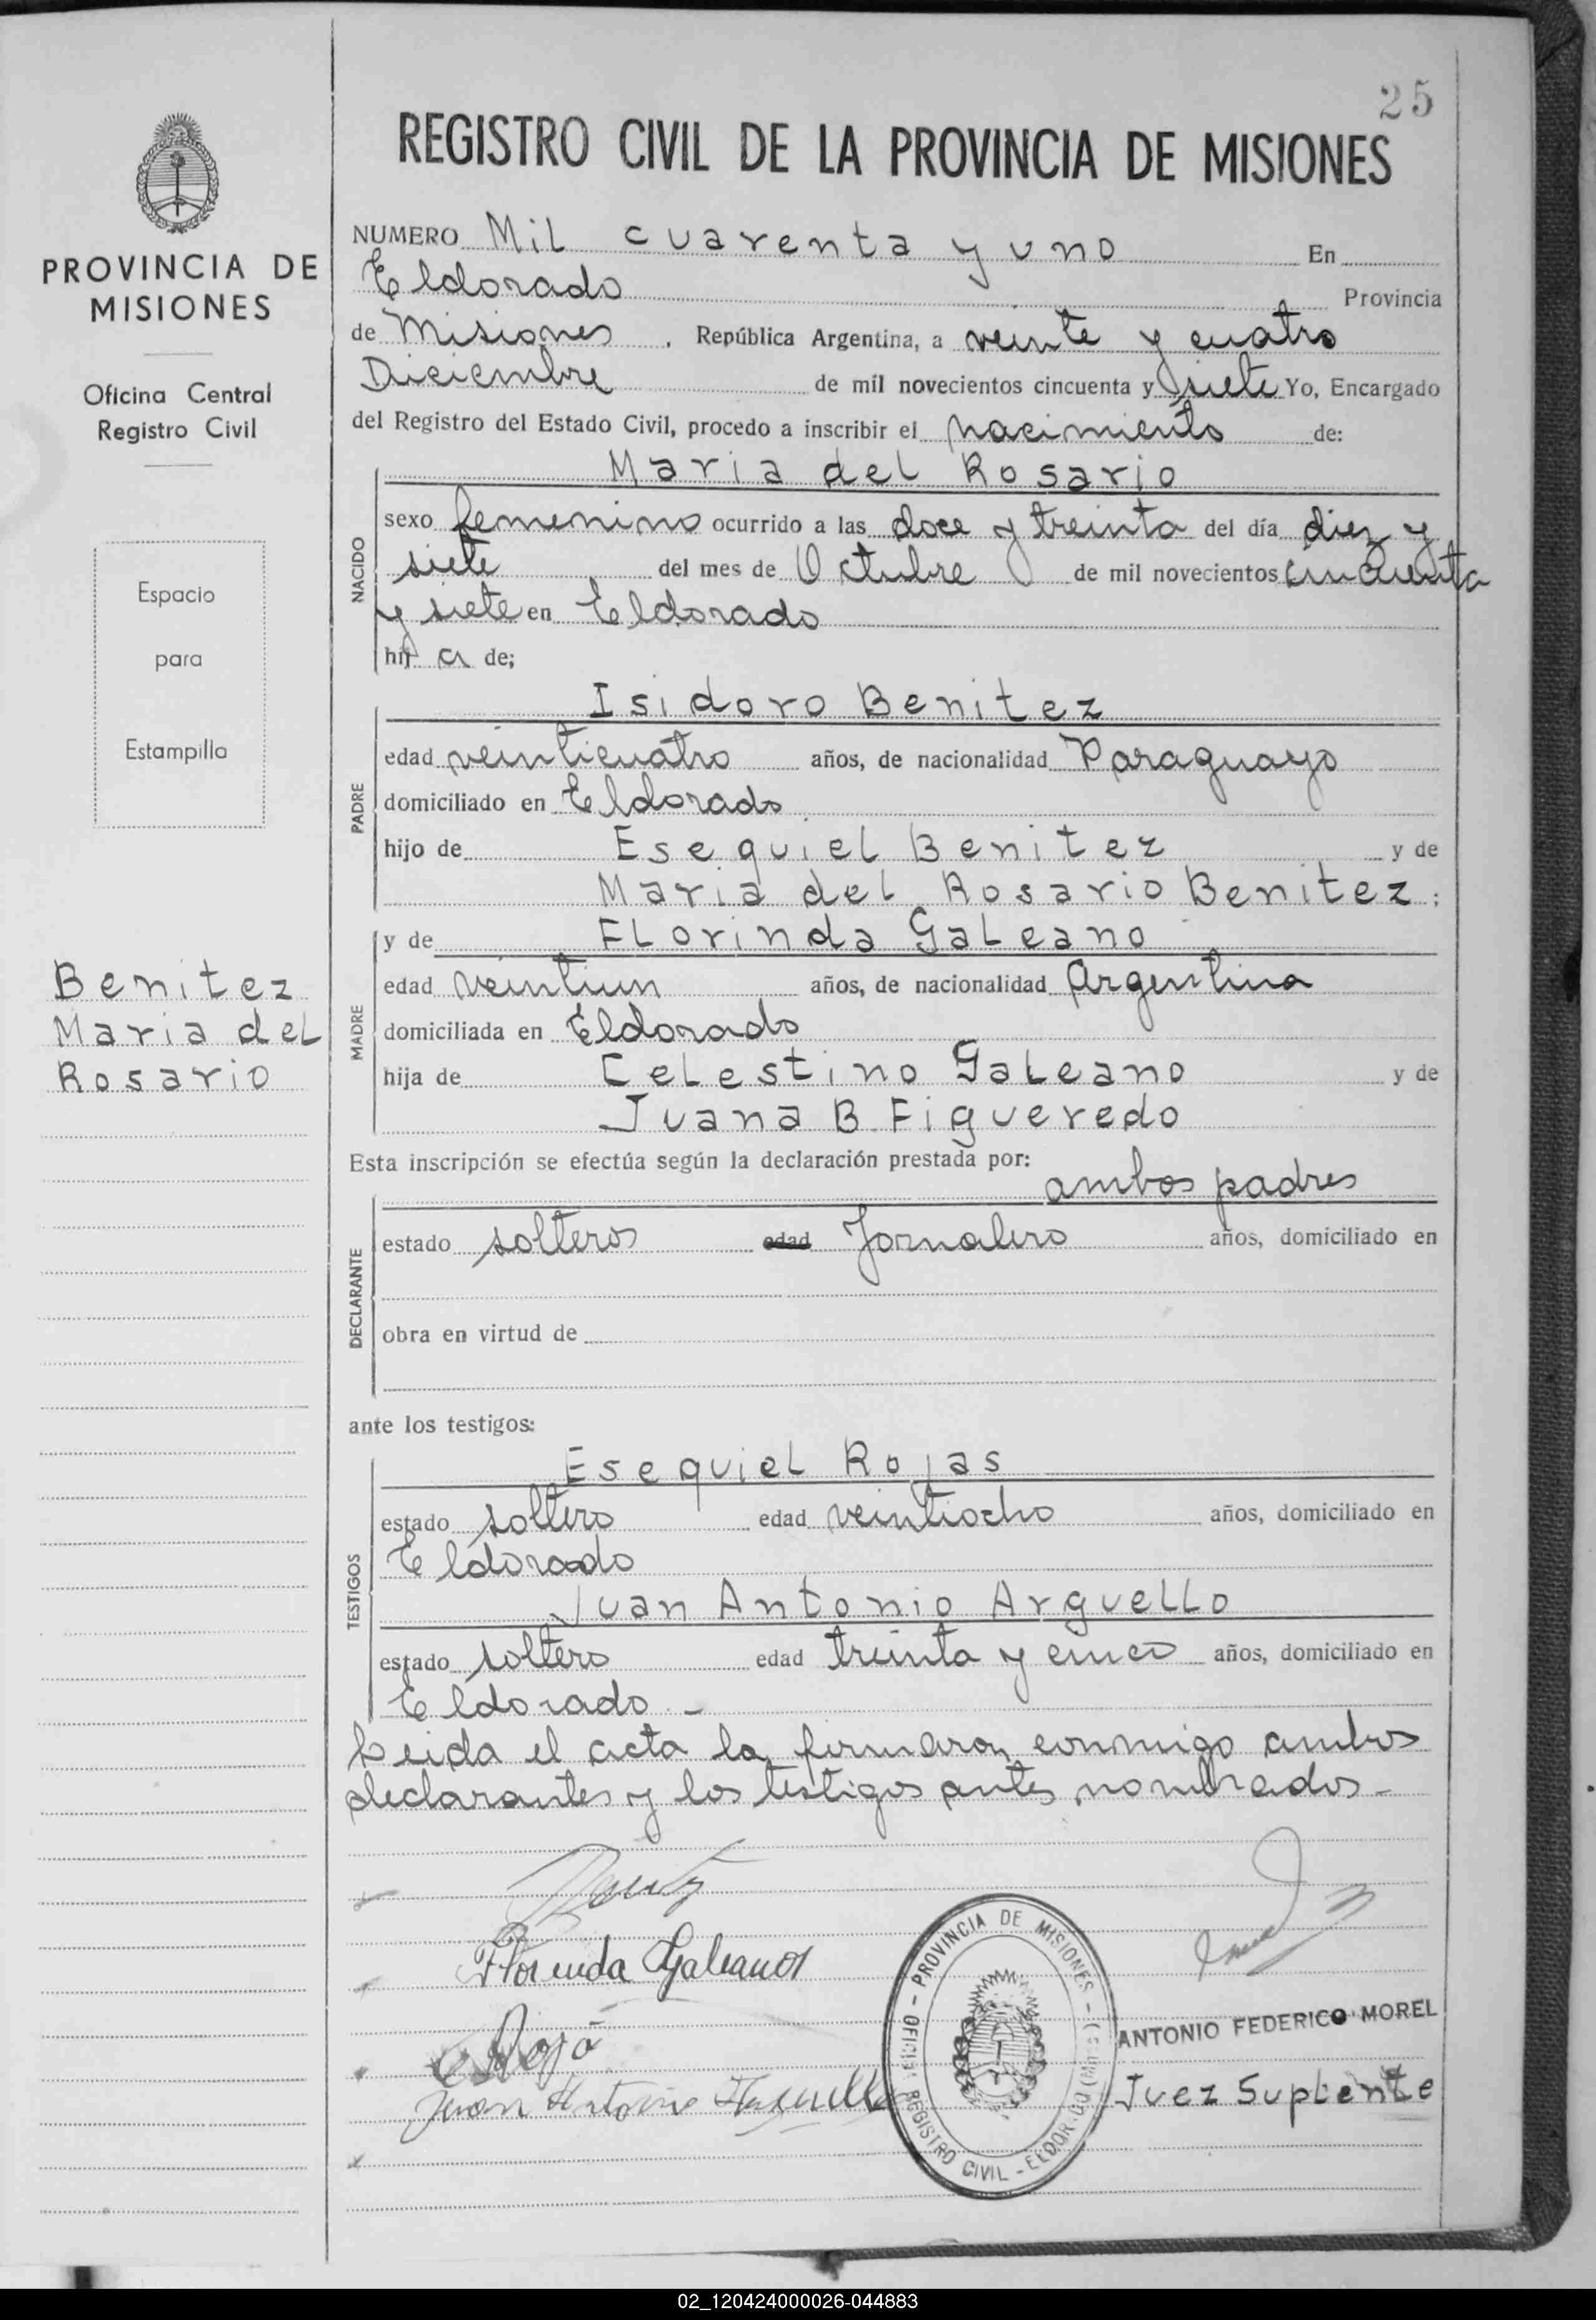 25
REGISTRO CIVIL DE LA PROVINCIA DE MISIONES
PROVINCIA DE
MISIONES
Oficina Central
Registro Civil
Espacio
para
Estampilla
Benitez
Maria del
Rosario
NUMERO Mil cuarenta y uno En
Eldorado Provincia
de Misiones, República Argentina, a veinte y cuatro
Diciembre de mil novecientos cincuenta y siete Yo, Encargado
del Registro del Estado Civil, procedo a inscribir el nacimiento de:
NACIDO
Maria del Rosario
sexo femenino ocurrido a las doce y treinta del día diez y
siete del mes de Octubre de mil novecientos cincuenta
y siete en Eldorado
hij a de;
PADRE
Isidoro Benitez
edad veinticuatro años, de nacionalidad Paraguayo
domiciliado en Eldorado
hijo de Esequiel Benitez y de
Maria del Rosario Benitez;
MADRE
y de Florinda Galeano
edad veintiun años, de nacionalidad Argentina
domiciliada en Eldorado
hija de Celestino Galeano y de
Juana B Figueredo
Esta inscripción se efectúa según la declaración prestada por:
DECLARANTE
ambos padres
estado solteros edad Jornalero años, domiciliado en
obra en virtud de
ante los testigos:
TESTIGOS
Esequiel Rojas
estado soltero edad veintiocho años, domiciliado en
Eldorado
Juan Antonio Arguello
estado soltero edad treinta y cinco años, domiciliado en
Eldorado -
Leida el acta la firmaron conmigo ambos
declarantes y los testigos antes nombrados -
Florinda Galeano
Juan Antonio
PROVINCIA DE MISIONES
REGISTRO CIVIL - ELDORADO
ANTONIO FEDERICO MOREL
Juez Suplente
02_120424000026-044883